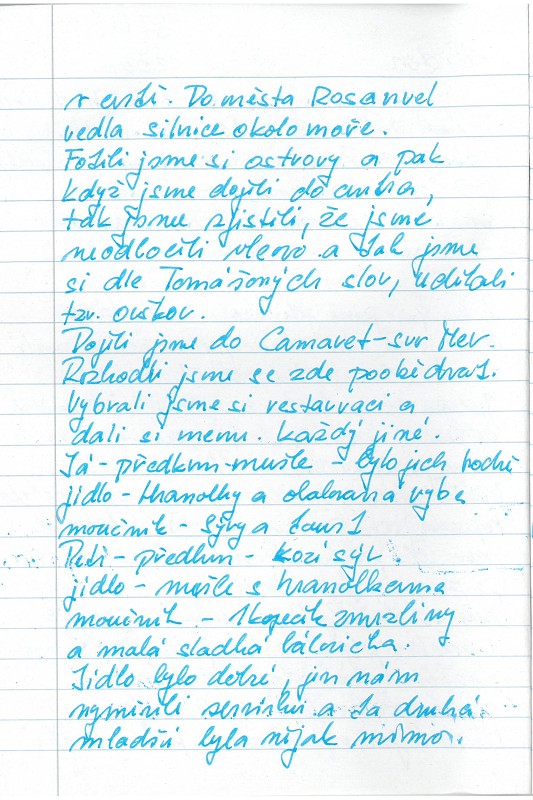 v Do města Rosanvel
vedla silnice okolo moře.
Fotili jsme si ostrovy a pak
když jsme dojeli do
tak jsme zjistili, že jsme
neodbočili vlevo a tak jsme
si dle Tomášových slov, udělali
tzv.
Dojeli jsme do Camaret-sur Mer.
Rozhodli jsme se zde poobědvat.
Vybrali jsme si restauraci a
dali si menu. každý jiné.
Já - předkrm - mušle - bylo jich hodně
jídlo - hranolky a ryba
moučník - sýry a
předkrm - kozí sýr.
jídlo - mušle s hranolkama
moučník - 1 kopeček zmrzliny
a malá sladká
Jídlo bylo dobré, jen nám
a ta druhá
mladší byla nějak mimo.